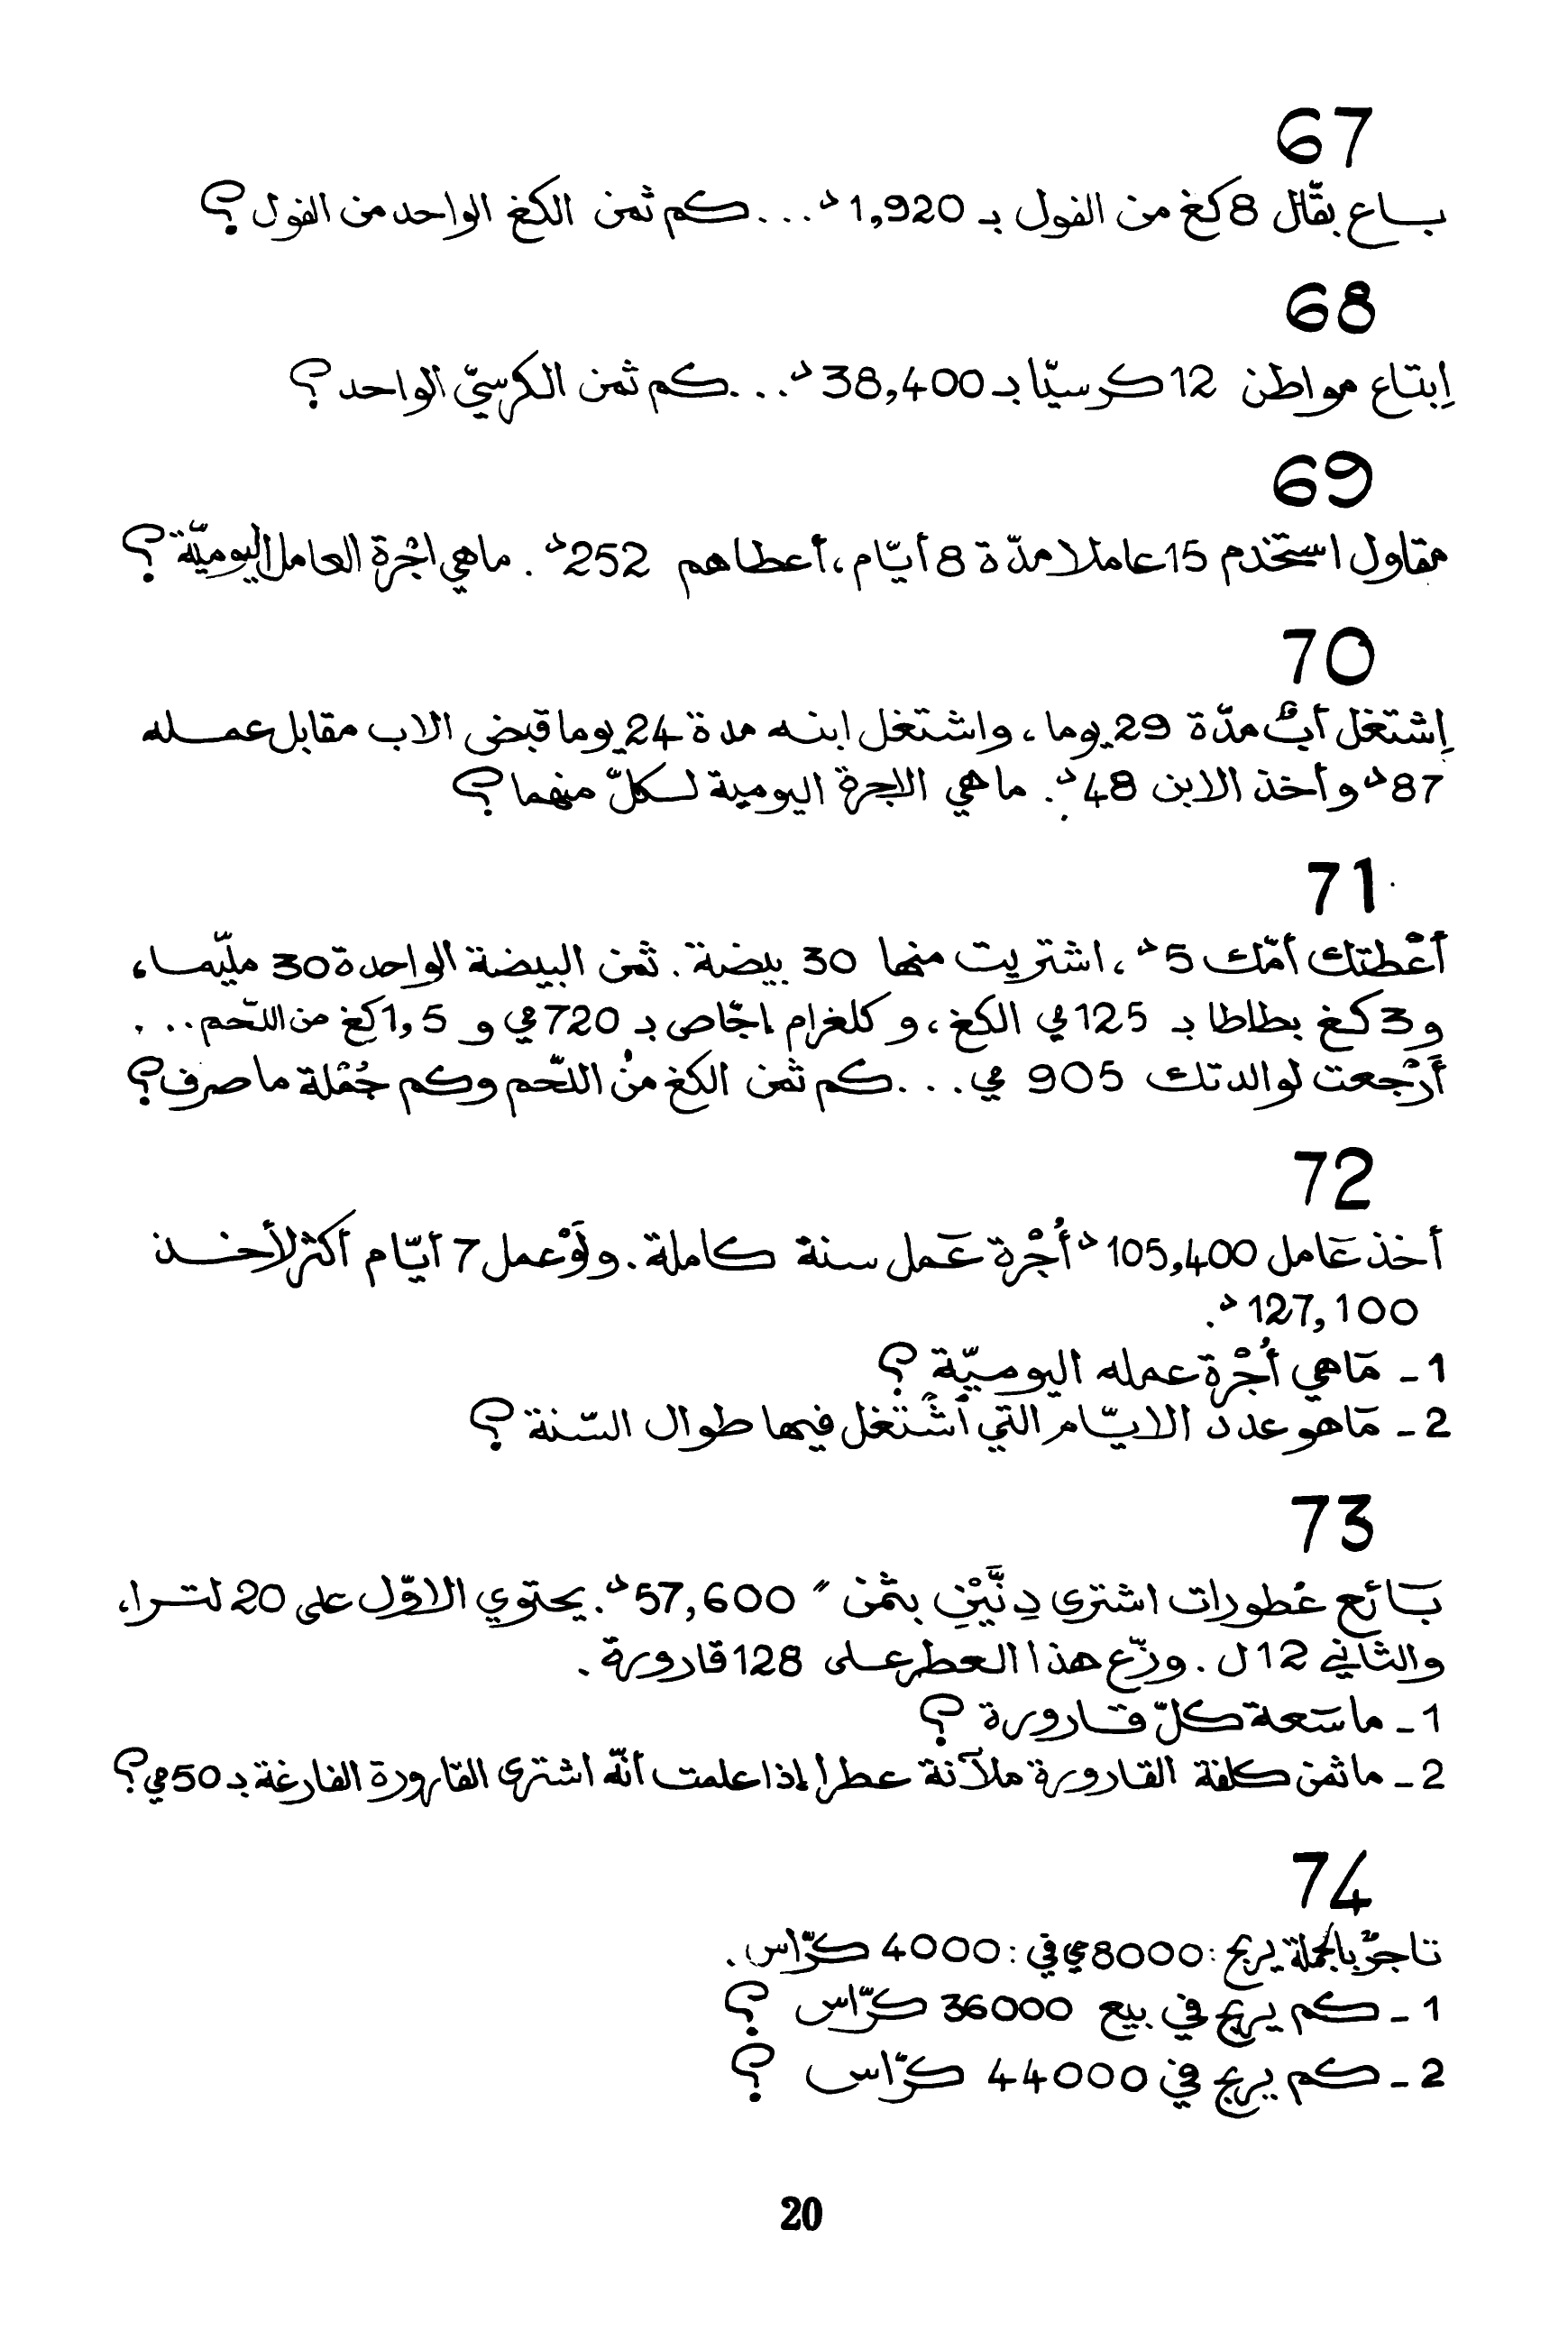 67
باع بقّال 8 كغ من الفول بـ 1,920 د... كم ثمن الكغ الواحد من الفول؟
68
اِبتاع مواطن 12 كرسيّا بـ 38,400 د... كم ثمن الكرسيّ الواحد؟
69
مقاول استخدم 15 عاملا مدّة 8 أيّام، أعطاهم 252 د. ماهي اجْرة العامل اليوميّة؟
70
اِشتغل أبٌ مدّة 29 يوما، واشتغل ابنه مدة 24 يوما قبض الاب مقابل عمله
87 د وأخذ الابن 48 د. ماهي الاجرة اليومية لكلّ منهما؟
71
أعْطتك أمّك 5 د، اشتريت منها 30 بيضة. ثمن البيضة الواحدة 30 مليّما،
و3 كغ بطاطا بـ 125 مي الكغ، وكلغرام اجّاص بـ 720 مي و 1,5 كغ من اللّحم...
أَرْجعت لوالدتك 905 مي... كم ثمن الكغ منْ اللّحم وكم جُمْلة ما صرف؟
72
أخذ عَامل 105,400 د أُجْرة عَمل سنة كاملة. ولَوْ عمل 7 أيّام أكثر لأخذ
127,100 د.
1 - مَاهي أُجْرة عمله اليوميّة؟
2 - مَاهو عدد الايّام التي أشْتغل فيها طوال السّنة؟
73
بَائع عُطورات اشترى دِنَّيْنِ بثمن " 57,600 د. يحتوي الاوّل على 20 لترا،
والثاني 12 ل. وزّع هذا العطر على 128 قارورة.
1 - ما سَعة كلّ قارورة؟
2 - ما ثمن كلفة القارورة ملآنة عطرا إذا علمت أنّه اشترى القارورة الفارغة بـ 50 مي؟
74
تاجرٌ بالجملة يربح: 8000 مي في: 4000 كرّاس.
1 - كم يربح في بيع 36000 كرّاس؟
2 - كم يربح في 44000 كرّاس؟
20